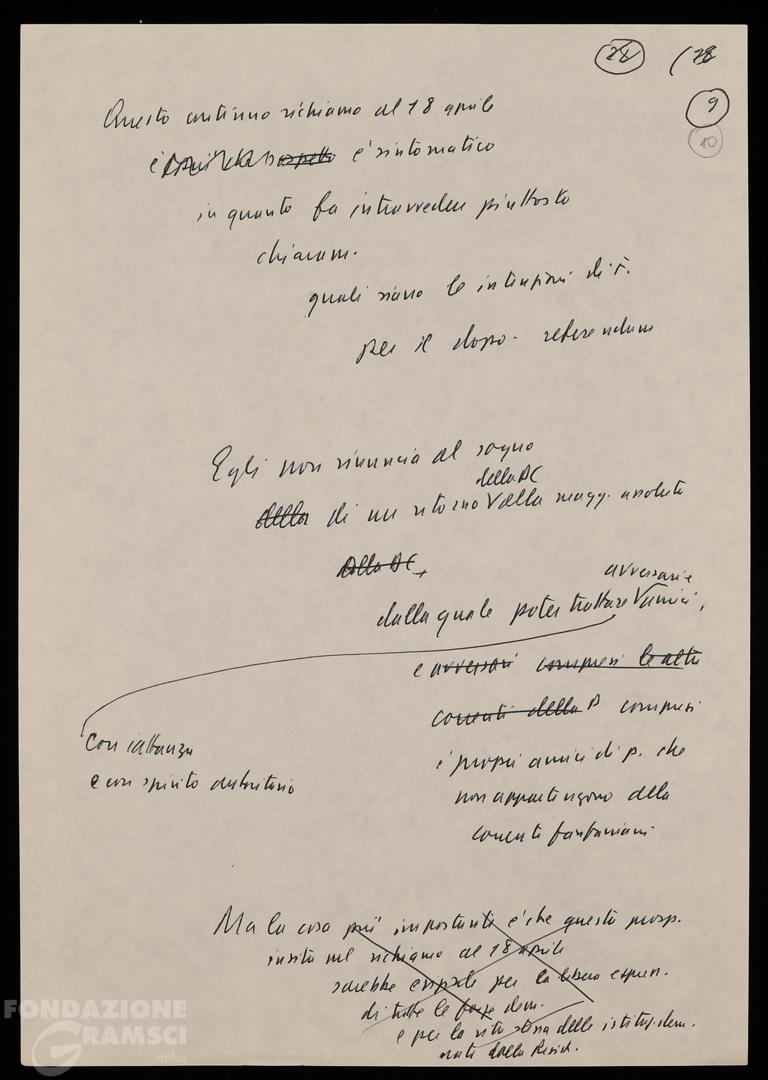 28 (28
9
10
Questo continuo richiamo al 18 aprile
è sospetto è sintomatico
in quanto fa intravvedere piuttosto
chiaram.
quali siano le intenzioni di F.
per il dopo-referendum
Egli non rinuncia al sogno
della DC
della di un ritorno V alla magg. assoluta
della DC,
avversari e
dalla quale poter trattare V amici,
e avversari compresi le altre
correnti della D compresi
i propri amici di p. che
non appartengono della
corrente fanfaniani
con iattanza
e con spirito autoritario
Ma la cosa più importante è che questa prosp.
insita nel richiamo al 18 aprile
sarebbe per la libera espress.
di tutte le forze dem.
e per la vita stessa delle istituz. dem.
nate dalla Resist.
FONDAZIONE
GRAMSCI
onlus